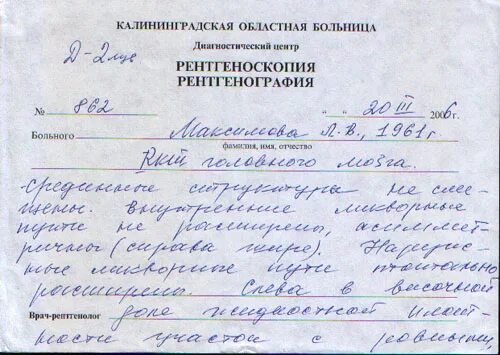 КАЛИНИНГРАДСКАЯ ОБЛАСТНАЯ БОЛЬНИЦА
Диагностический центр
Д-2
РЕНТГЕНОСКОПИЯ
РЕНТГЕНОГРАФИЯ
№ 862 " " 20 III 2006г.
Больного Максимова Л.В., 1961г
фамилия, имя, отчество
головного мозга.
Срединные структуры не сме-
щены. Внутренние ликворные
пути не расширены, асиммет-
ричны (справа шире). Наруж-
ные ликворные пути
расширены. Слева в височной
Врач-рентгенолог доле жидкостной плот-
ности участок с ровными,